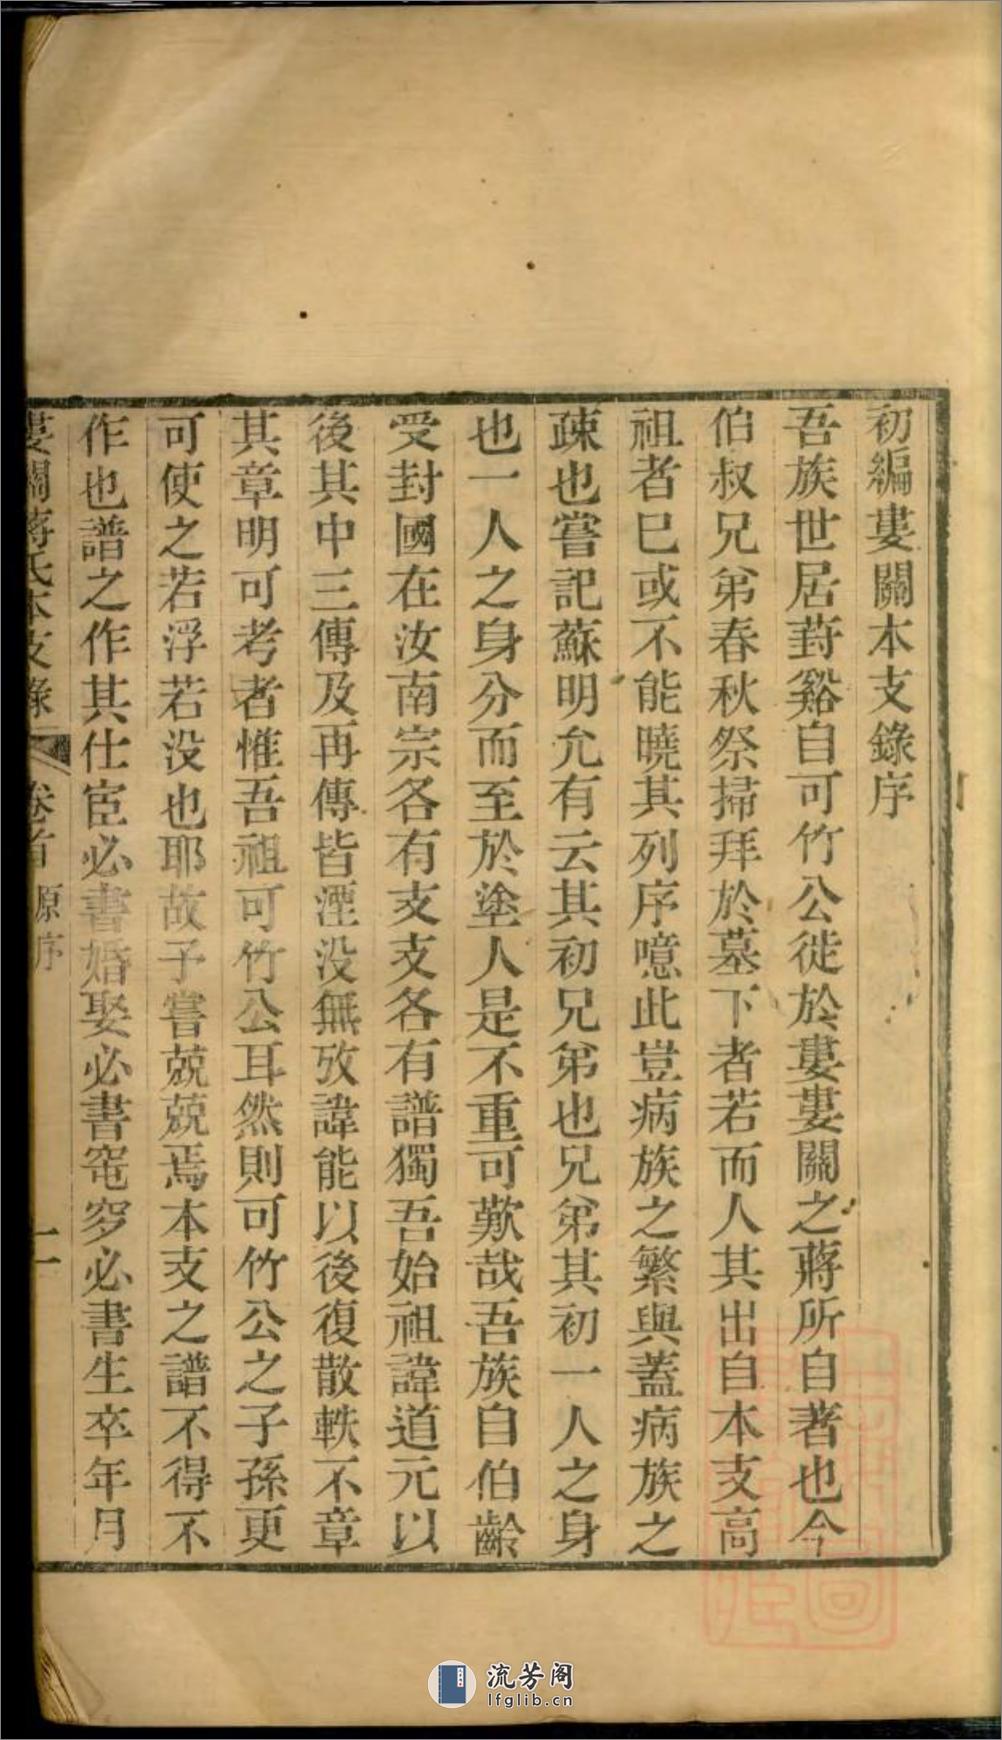 初編婁關本支錄序
吾族世居葑谿自可竹公徙於婁婁關之蔣所自著也今
伯叔兄弟春秋祭掃拜於墓下者若而人其出自本支高
祖者巳或不能曉其列序噫此豈病族之繁與蓋病族之
疎也嘗記蘇明允有云其初兄弟也兄弟其初一人之身
也一人之身分而至於塗人是不重可歎哉吾族自伯齡
受封國在汝南宗各有支支各有譜獨吾始祖諱道元以
後其中三傳及再傳皆湮没無攷諱能以後復散軼不章
其章明可考者惟吾祖可竹公耳然則可竹公之子孫更
可使之若浮若没也耶故予嘗兢兢焉本支之譜不得不
作也譜之作其仕宦必書婚娶必書窀穸必書生卒年月
婁關蔣氏本支錄 卷首 原序 一
流芳阁
lfglib.cn